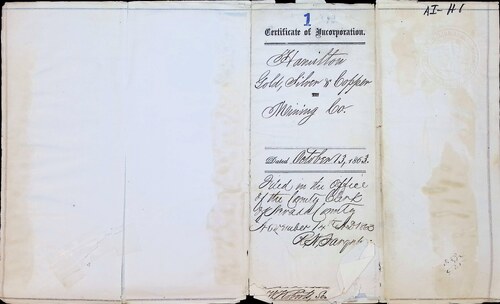 AI-H1
1
Certificate of Incorporation.
Hamilton
Gold, Silver & Copper
Mining Co.
Dated October 13, 1863.
Filed in the Office
of the County Clerk
County
November 14th A.D. 1863